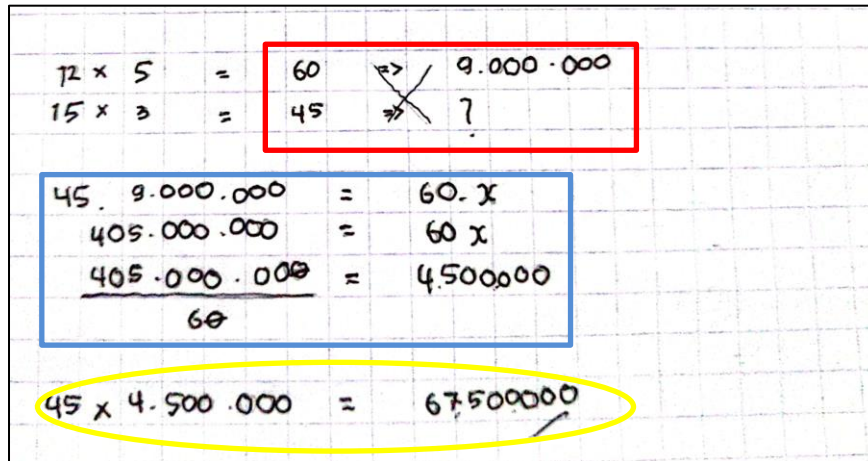 12 × 5 = 60 => 9.000.000
15 × 3 = 45 => ?
45. 9.000.000 = 60. x
405.000.000 = 60 x
405.000.000 = 4.500.000
60
45 × 4.500.000 = 67.500000